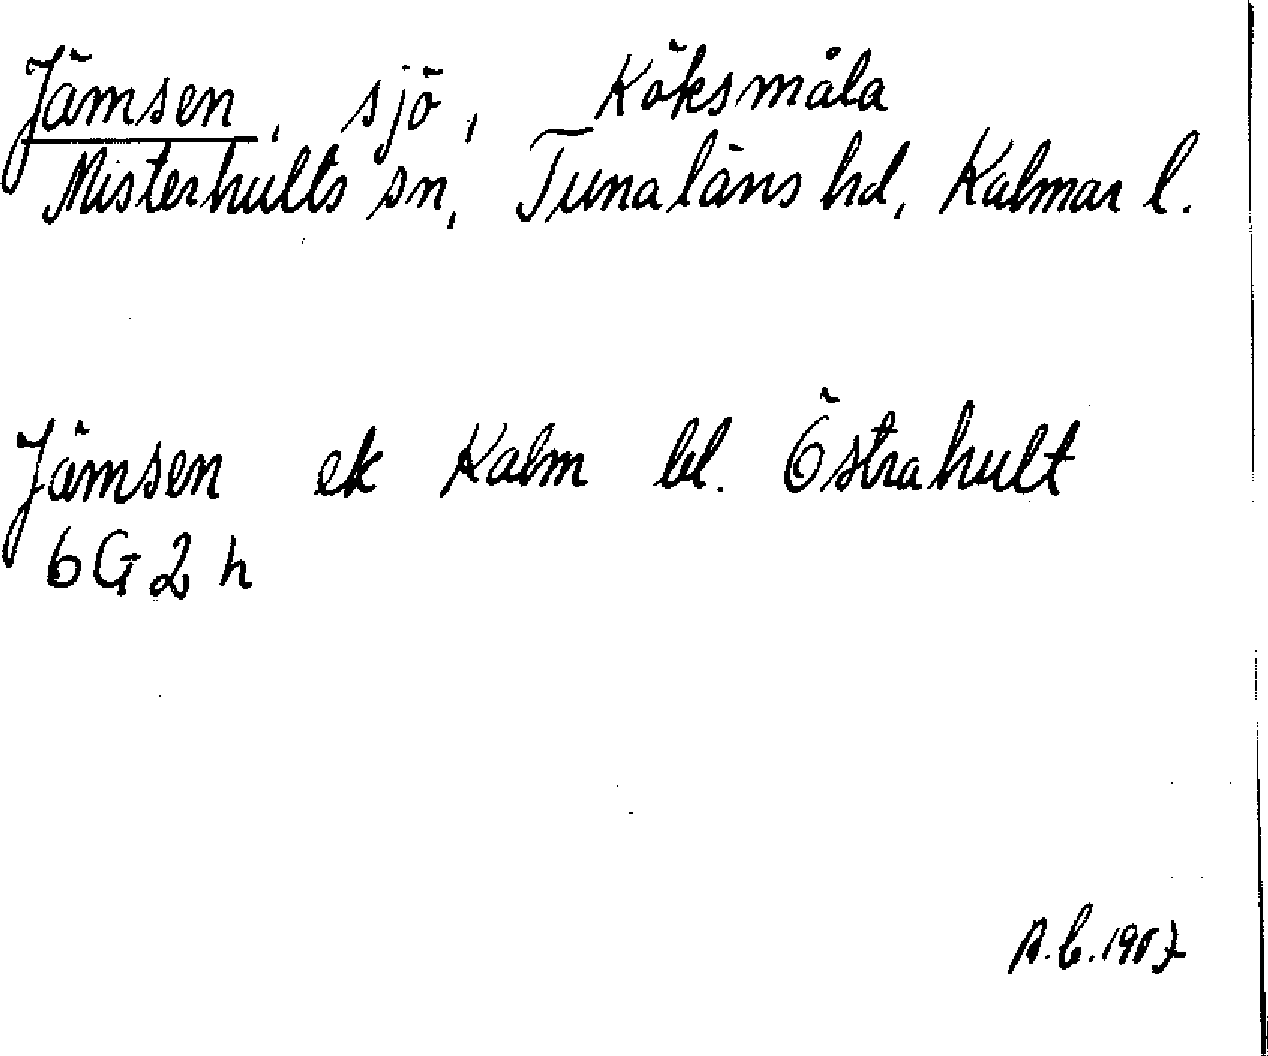 Jämsen, sjö, Köksmåla
Misterhults sn, Tunaläns hd, Kalmar l.
Jämsen ek Kalm bl. Östrahult
6G2h